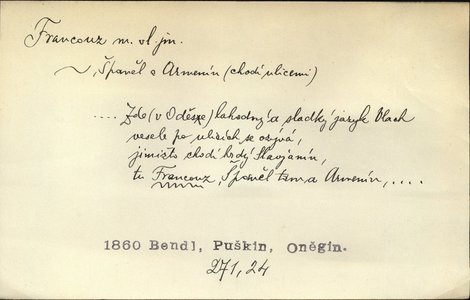 Francouz m. vl. jm.
~, Španěl a Armenín (chodí ulicemi)
.... Zde (v Oděsse) lahodný a sladký jazyk Vlach
vesele po ulicích se ozývá,
jimižto chodí hrdý Slavjanín,
tu Francouz, Španěl tam a Armenín, ....
1860 Bendl, Puškin, Oněgin.
271, 24